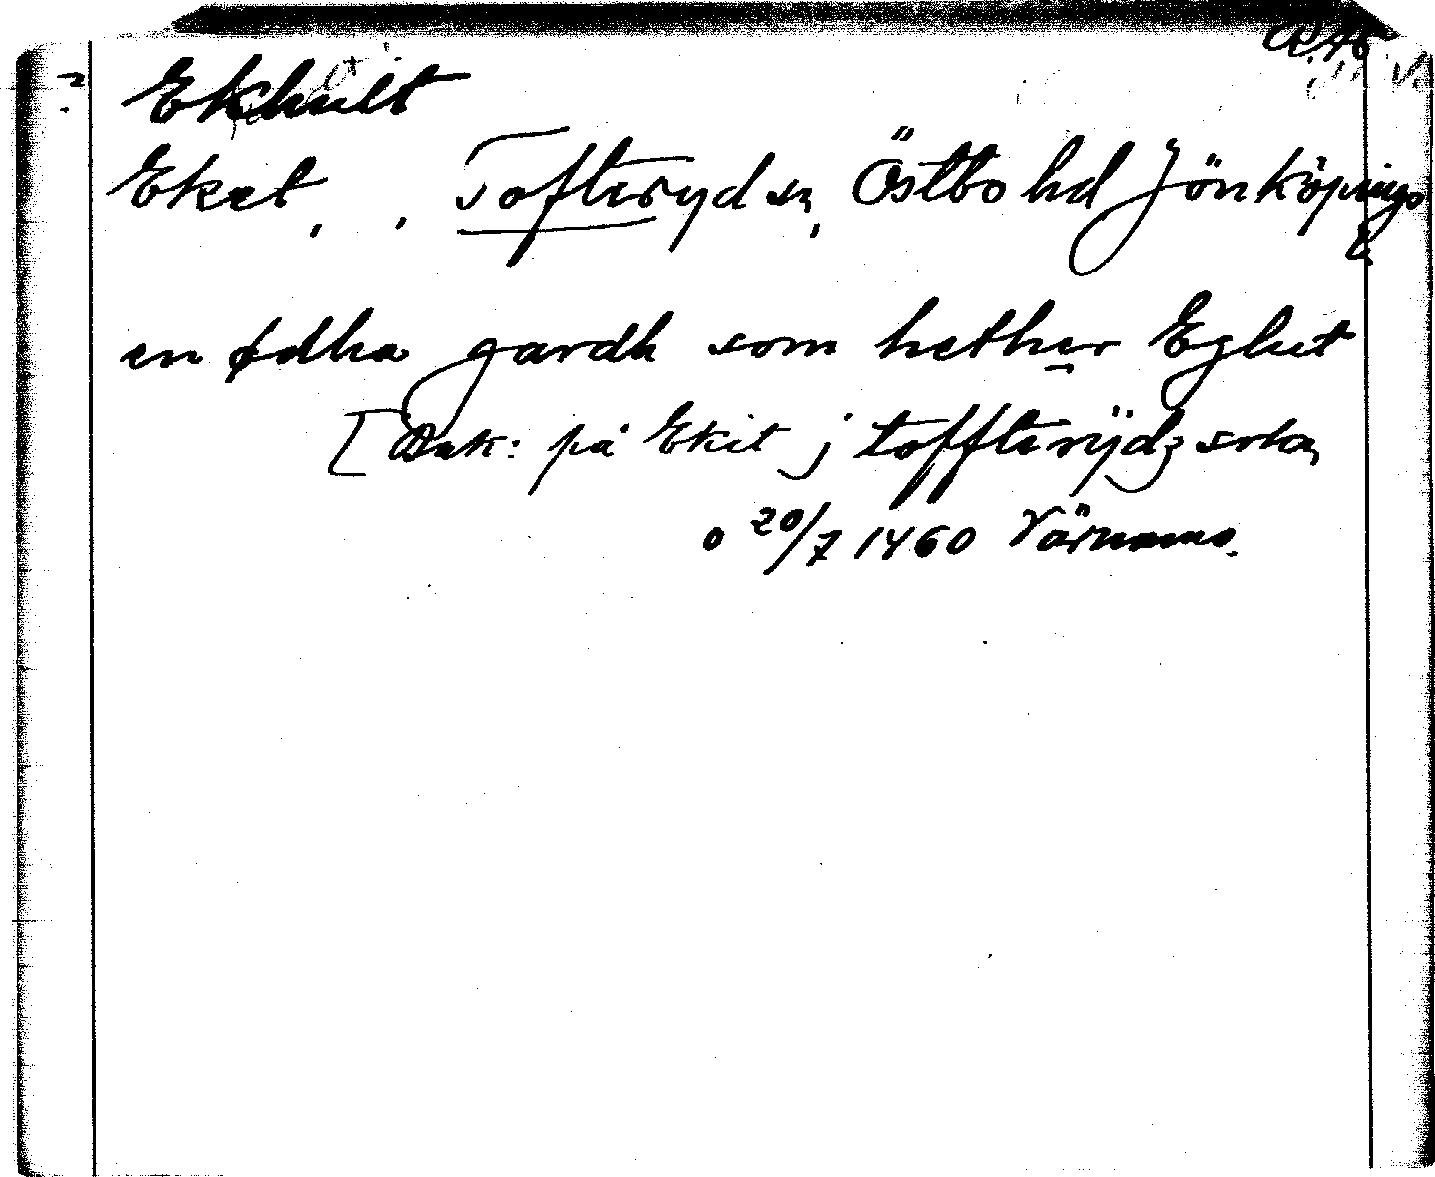 Ekhult
Eket, , Tofteryd sn, Östbo hd Jönköpings
L.
en ødha gardh som hether Eglut
[Bak: på Ekit j toffterÿdz sokn
o 20/7 1460 Värnamo.